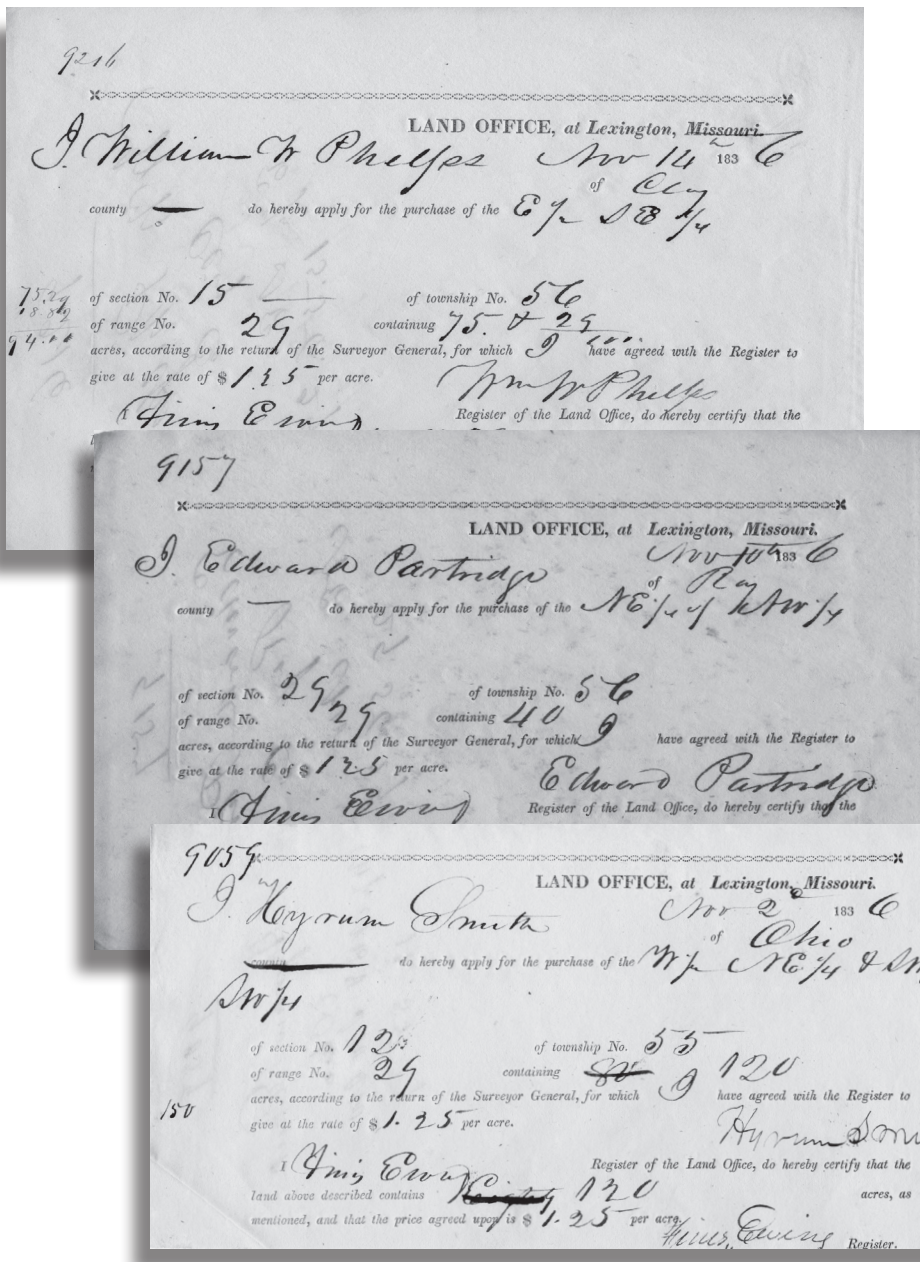 9216
LAND OFFICE, at Lexington, Missouri.
I. William W Phelps Nov 14 1836
of Clay
county do hereby apply for the purchase of the E ½ SE ¼
of section No. 15 of township No. 56
75.29
18.82
94.11
of range No. 29 containing 75. & 29
acres, according to the return of the Surveyor General, for which I have agreed with the Register to
give at the rate of $ 1 25 per acre. Wm W Phelps
I Finis Ewing Register of the Land Office, do hereby certify that the
9157
LAND OFFICE, at Lexington, Missouri.
I. Edward Partridge Nov 10th 1836
of Ray
county do hereby apply for the purchase of the NE ¼ of NW ¼
of section No. 29 of township No. 56
of range No. 29 containing 40
acres, according to the return of the Surveyor General, for which I have agreed with the Register to
give at the rate of $ 1 25 per acre. Edward Partridge
I Finis Ewing Register of the Land Office, do hereby certify that the
9059
LAND OFFICE, at Lexington, Missouri.
I. Hyrum Smith Nov 2d 1836
of Ohio
county do hereby apply for the purchase of the W ½ NE ¼ &
SW ¼
of section No. 12 of township No. 55
of range No. 29 containing 80 120
acres, according to the return of the Surveyor General, for which I have agreed with the Register to
150
give at the rate of $ 1. 25 per acre. Hyrum
I Finis Ewing Register of the Land Office, do hereby certify that the
land above described contains Eighty 120 acres, as
mentioned, and that the price agreed upon is $ 1. 25 per acre.
Finis Ewing Register.